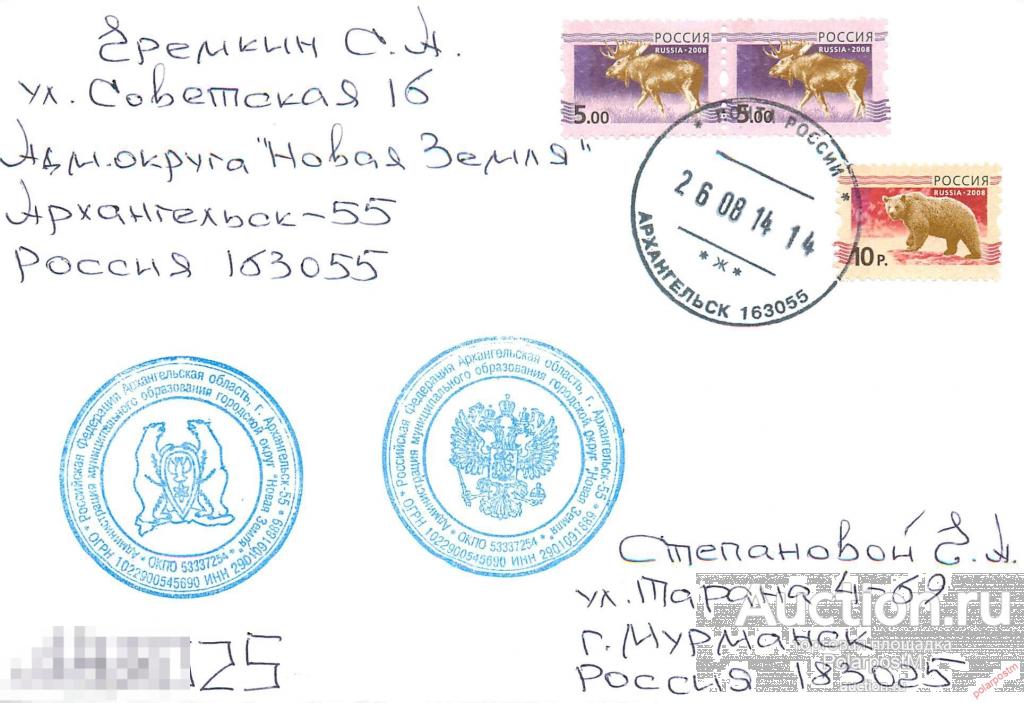 Еремкин С.А.
ул. Советская 16
Адм.округа "Новая Земля"
Архангельск-55
Россия 163055
РОССИЯ
RUSSIA·2008
5.00
РОССИЯ
RUSSIA·2008
5.00
РОССИЯ
RUSSIA·2008
10 Р.
* ПОЧТА РОССИИ *
26 08 14 14
* Ж *
АРХАНГЕЛЬСК 163055
* Российская Федерация Архангельская область, г. Архангельск-55 *
ОГРН 1022900545690 ИНН 2901091689
* Администрация муниципального образования городской округ "Новая Земля" *
ОКПО 53337254
* Российская Федерация Архангельская область, г. Архангельск-55 *
ОГРН 1022900545690 ИНН 2901091689
* Администрация муниципального образования городской округ "Новая Земля" *
ОКПО 53337254
Степановой Е.А.
ул. Папана 4-69
г. Мурманск
Россия 183025
25
Auction.ru
торговая площадка
PolarpostM
auction.ru
polarpostm